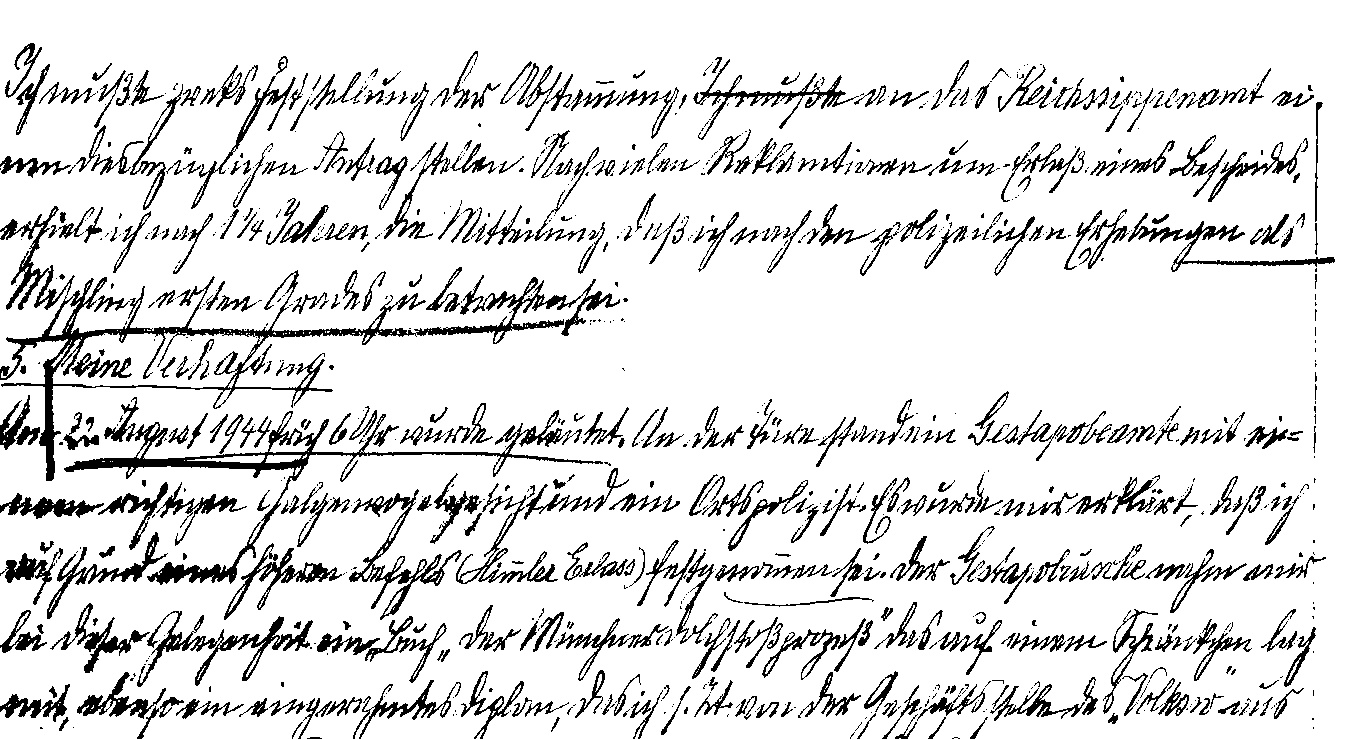 Ich mußte zweks Feststellung der Abstammung, Ich mußte an das Reichssippenamt ei,
nen diesbezüglichen Antrag stellen. Nach vielen Reklamtionen um Erlaß eines Bescheides,
erhielt ich nach 1¼ Jahren, die Mitteilung, daß ich nach den polizeilichen Erhebungen als
Mischling ersten Grades zu betrachten sei.
5. Meine Verhaftung.
Am 22. August 1944 früh 6 Uhr wurde geläutet. An der Türe stand ein Gestapobeamte mit ei=
nem richtigen Galgenvogelgesicht und ein Ortspolizist. Es wurde mir erklärt, daß ich
auf Grund eines höheren Befehls (Himmler Erlass) festgenommen sei. Der Gestapobursche nahm mir
bei dieser Gelegenheit ein Buch „Der Münchner Dolchstoßprozeß" das auf einem Schränkchen lag
mit, ebenso ein eingerahmtes Diplom, das ich s. Zt. von der Geschäftsstelle des „Volksw" aus